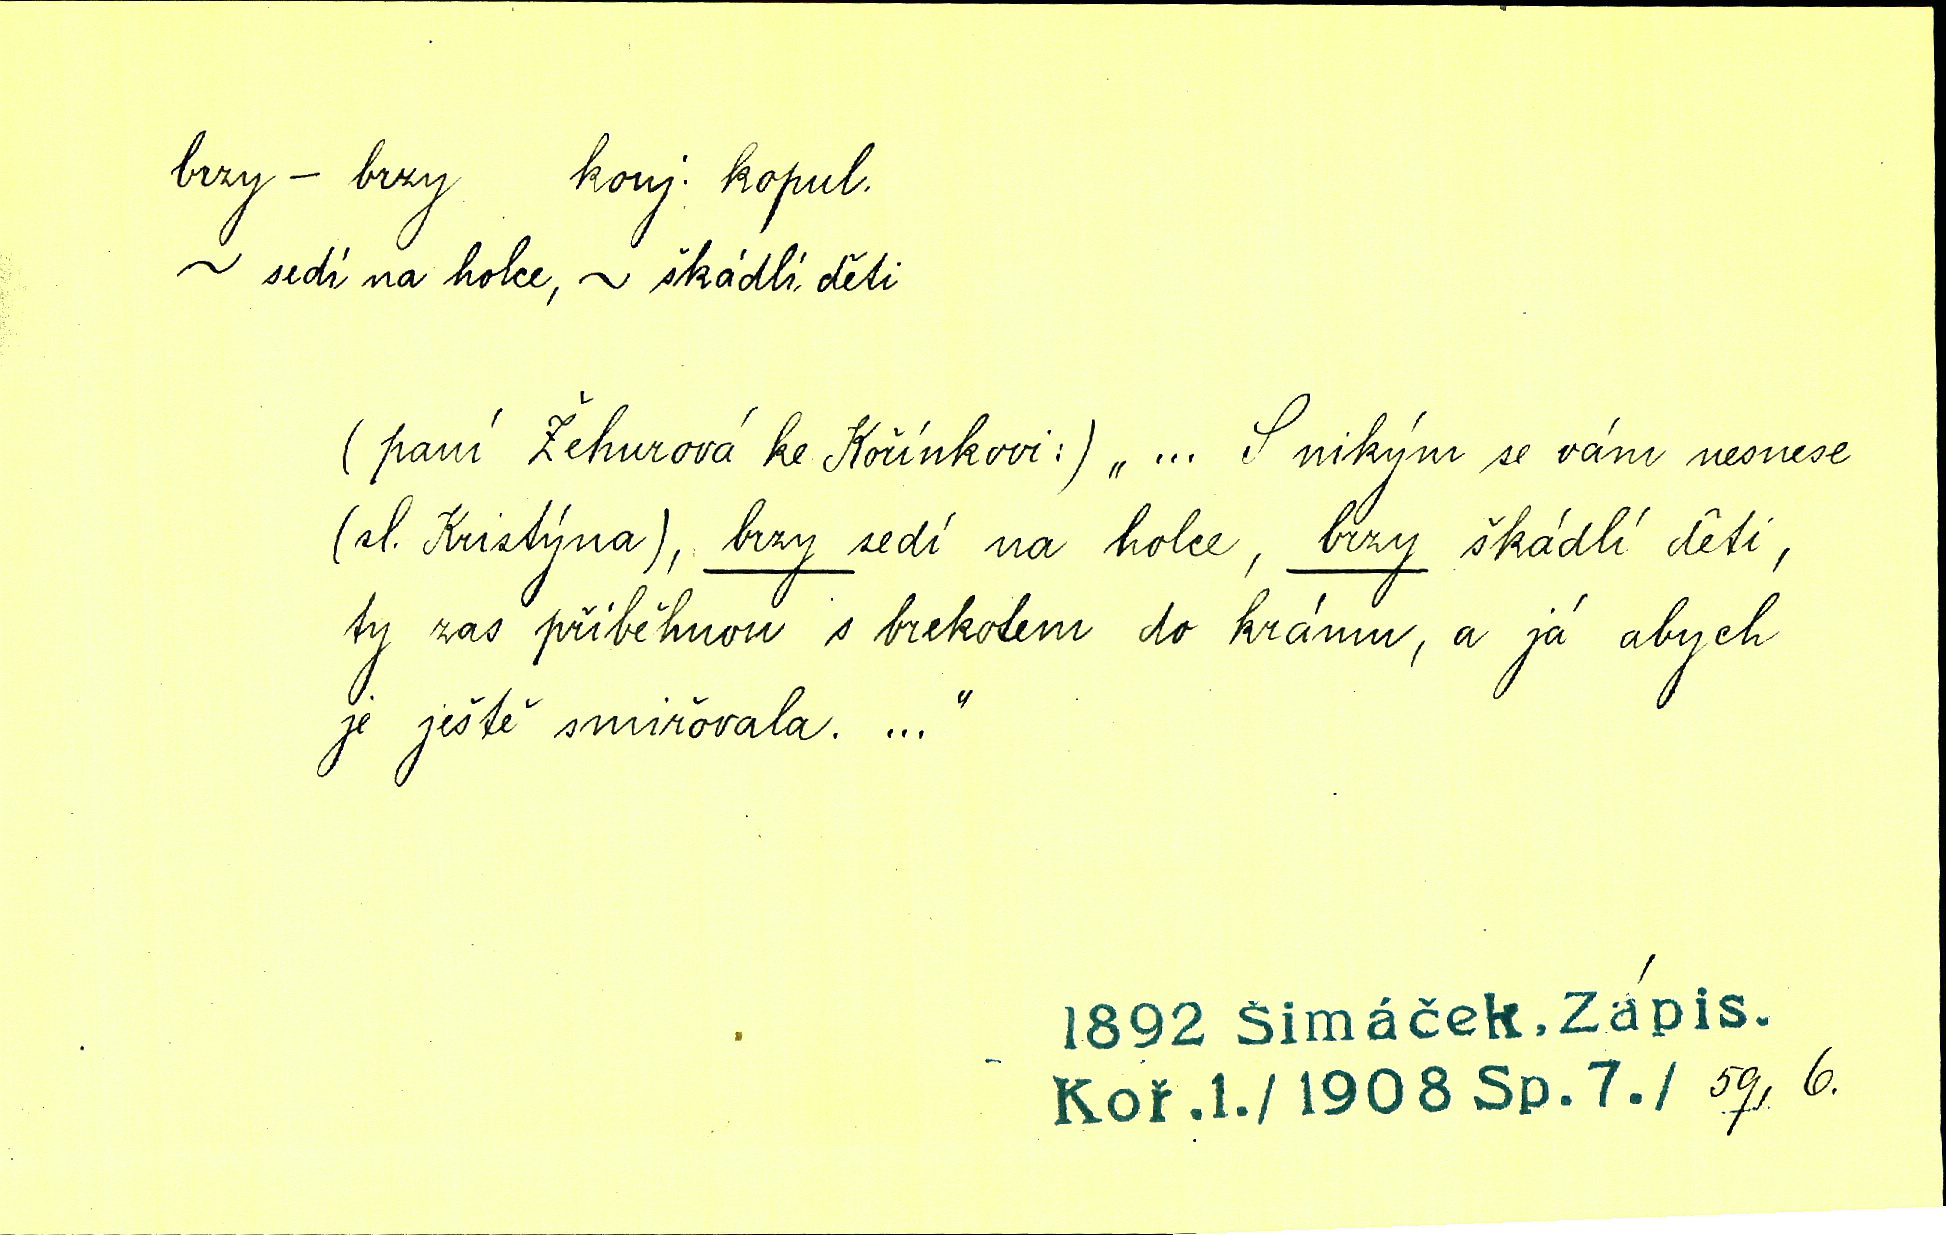 brzy – brzy konj. kopul.
~ sedí na holce, ~ škádlí děti
(paní Žehurová ke Kořínkovi:) „ ... S nikým se vám nesnese
(sl. Kristýna), brzy sedí na holce, brzy škádlí děti,
ty zas přiběhnou s brekotem do krámu, a já abych
je ještě smiřovala. ... “
1892 Šimáček, Zápis.
Koř.1./1908 Sp.7./ 59, 6.